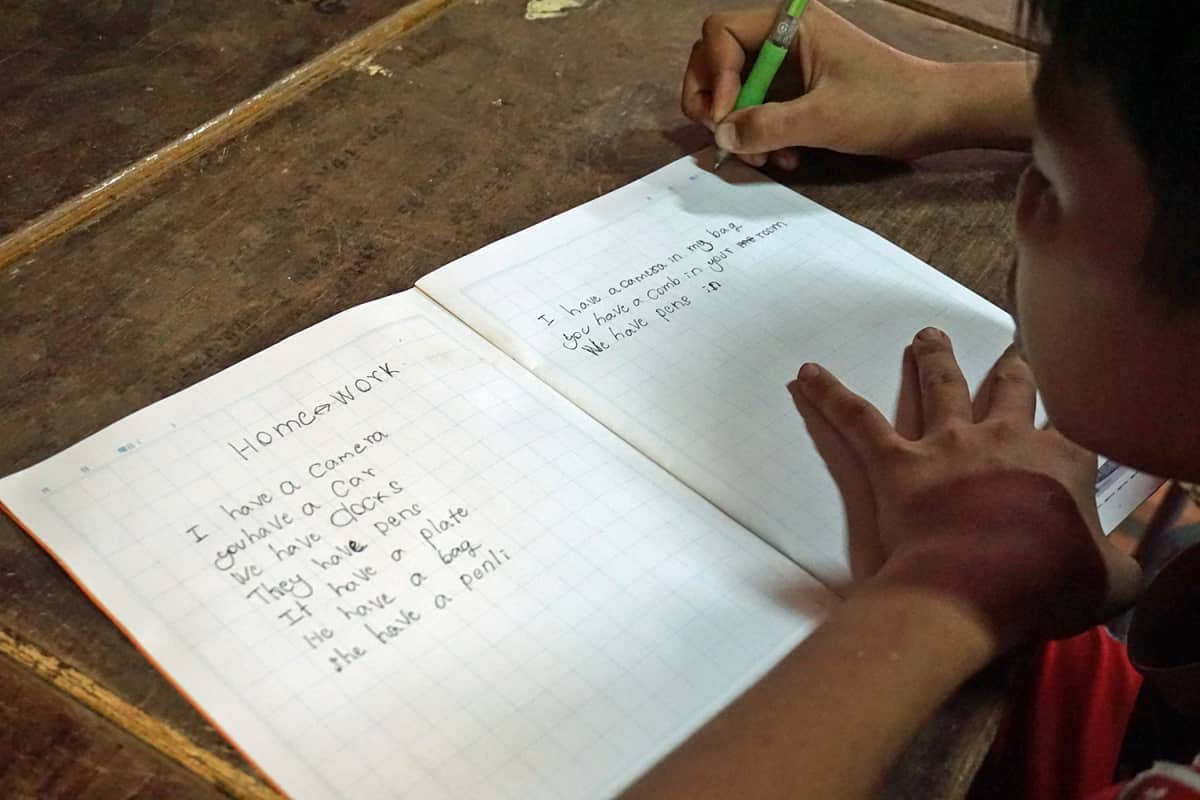 Home work
I have a camera
you have a car
We have clocks
They have pens
It have a plate
He have a bag
she have a penli
I have a camera in my bag
you have a comb in your room
We have pens in